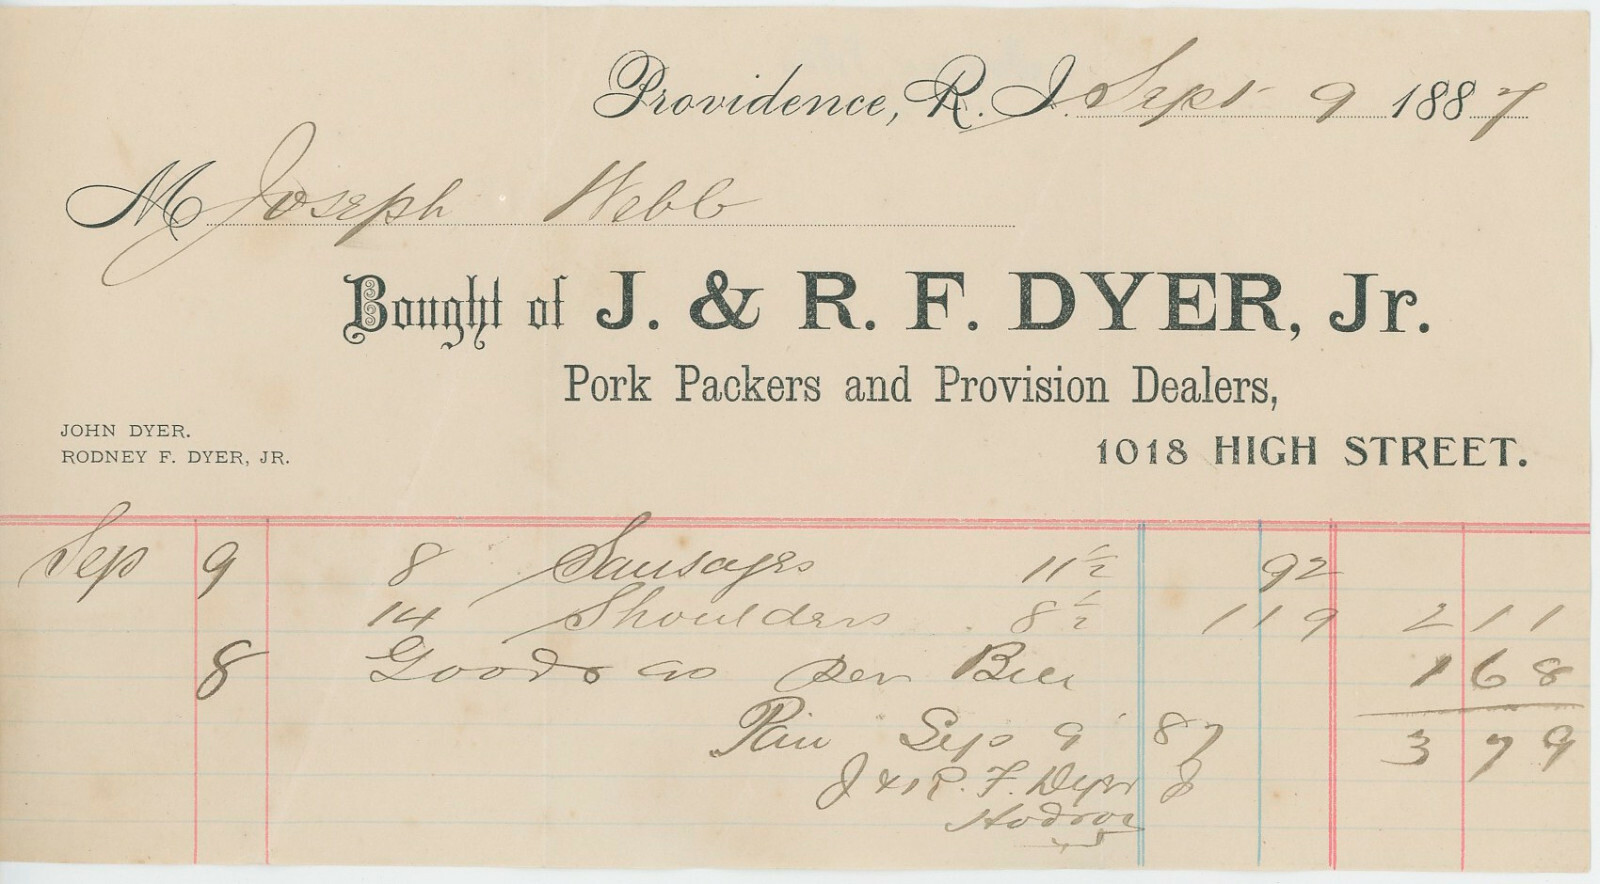 Providence, R. I. Sept 9 1887
M Joseph Webb
Bought of J. & R. F. DYER, Jr.
Pork Packers and Provision Dealers,
JOHN DYER.
RODNEY F. DYER, JR.
1018 HIGH STREET.
Sep 9 8 Sausages 11½ 92
14 Shoulders 8½ 1 19 2 11
8 Goods as per Bill 1 68
Paid Sep 9 87 3 79
J & R. F. Dyer J